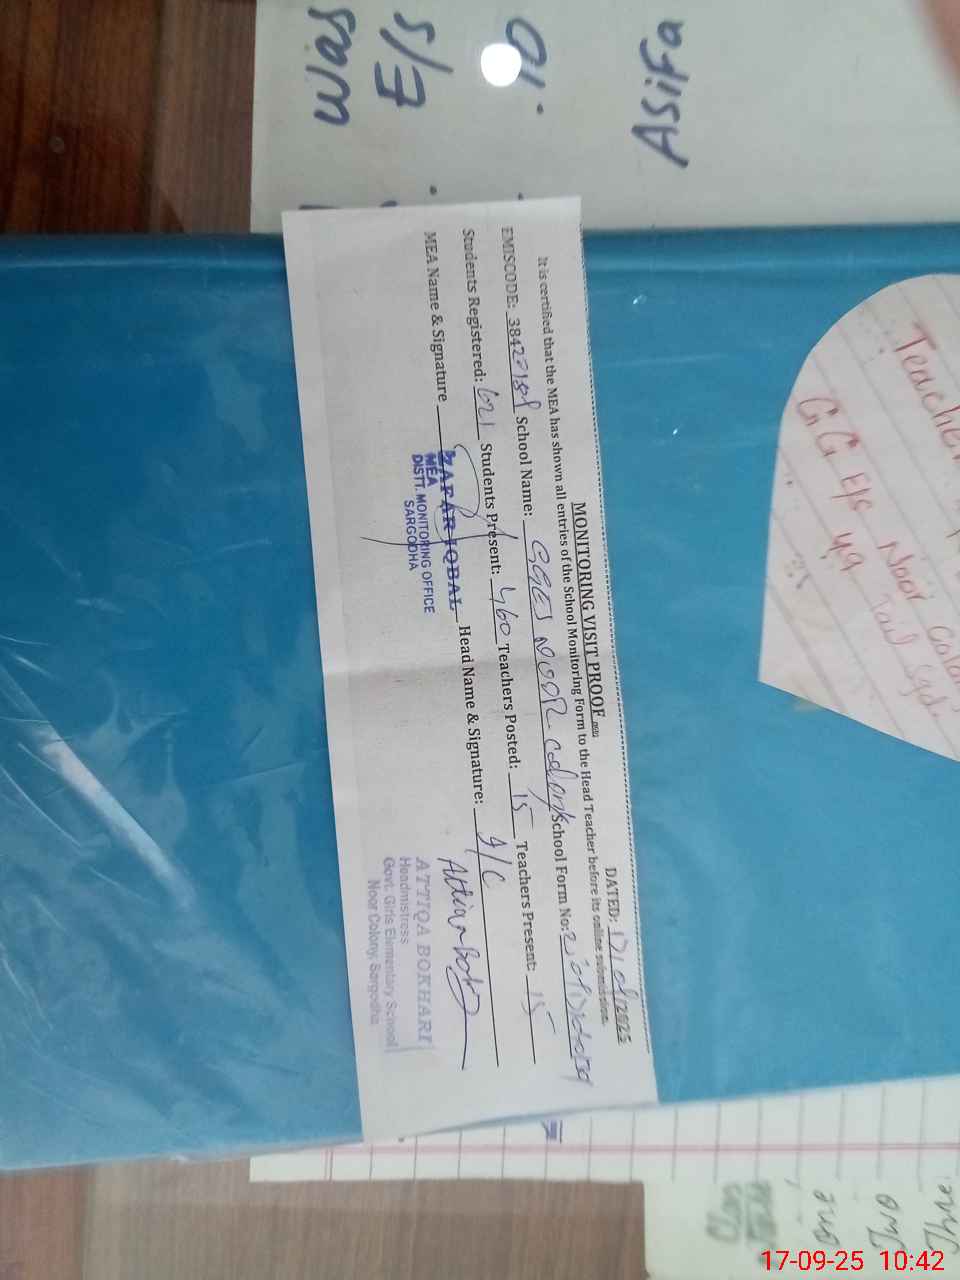 MONITORING VISIT PROOF
DATED: 17/09/2025
It is certified that the MEA has shown all entries of the School Monitoring Form to the Head Teacher before its online submissions.
EMISCODE: School Name: GGES NOOR Colony School Form No:
Students Registered: 621 Students Present: 460 Teachers Posted: 15 Teachers Present: 15
MEA Name & Signature ZAFAR IQBAL Head Name & Signature: I/C
MEA
DISTT. MONITORING OFFICE
SARGODHA
ATTIQA BOKHARI
Headmistress
Govt. Girls Elementary School
Noor Colony, Sargodha
Teacher
GG E/S Noor Colon
49 Tail Sgd.
Asifa
01.
S/E
One
Two
17-09-25 10:42